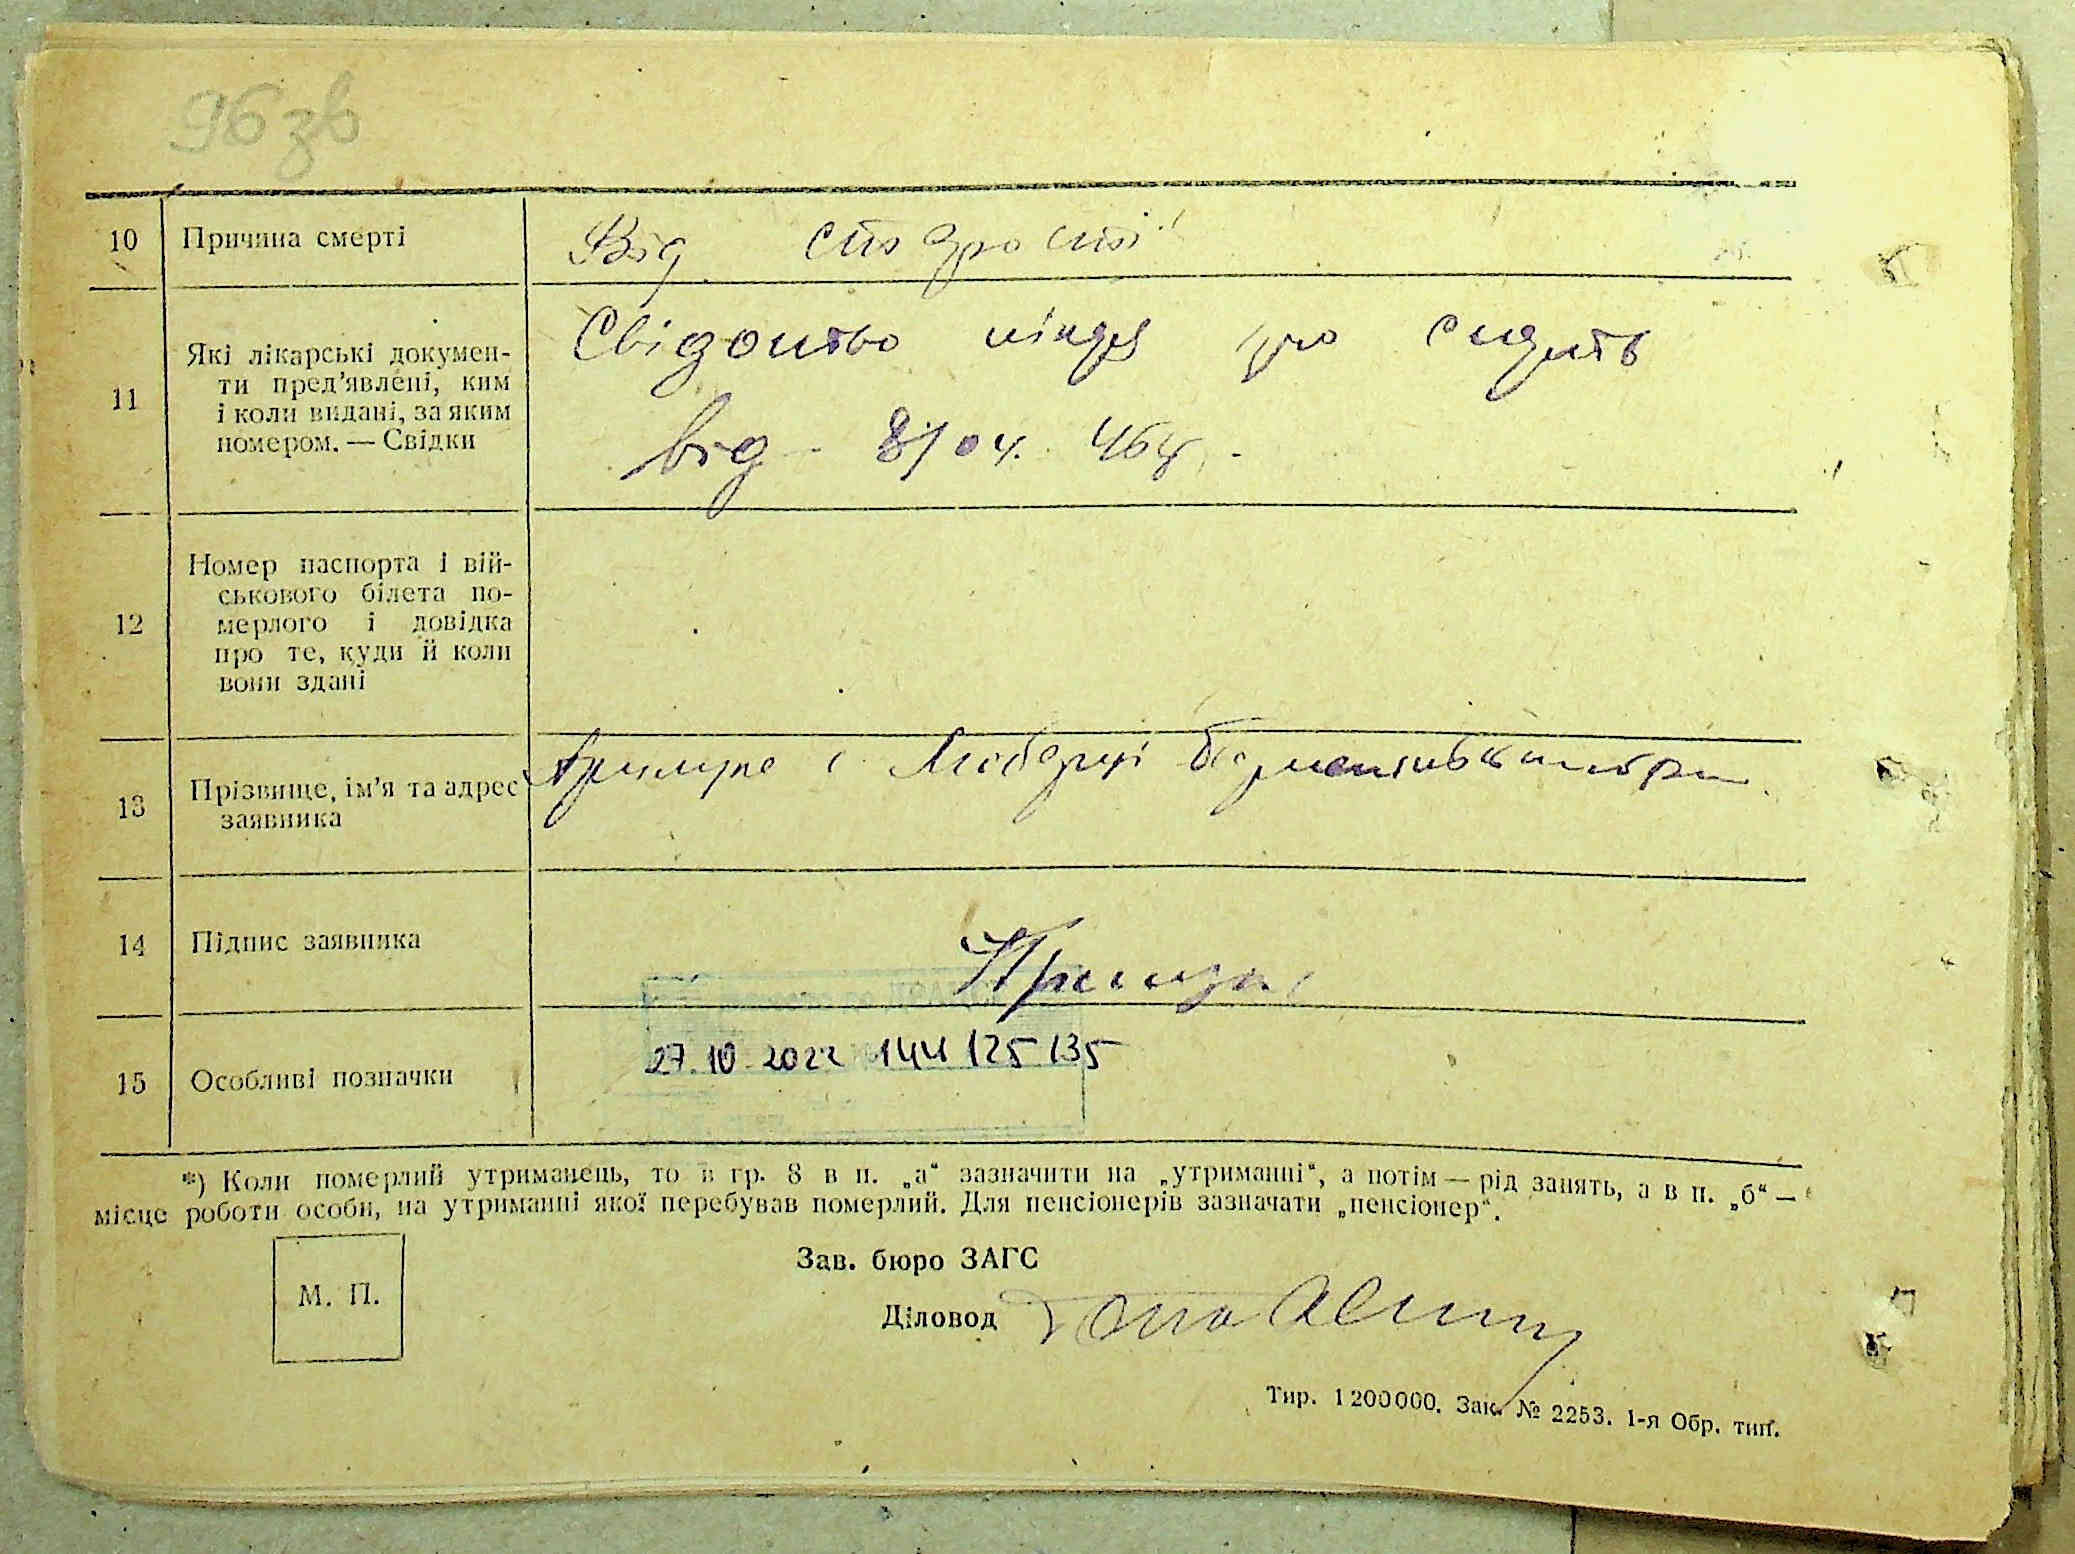 96 зв
10 Причина смерті Від старости
11 Які лікарські докумен-
ти пред'явлені, ким
і коли видані, за яким
номером. — Свідки
Свідоцтво про смерть
від - 8/04. 46р. -
12 Номер паспорта і вій-
ськового білета по-
мерлого і довідка
про те, куди й коли
вони здані
13 Прізвище, ім'я та адрес
заявника
14 Підпис заявника
15 Особливі позначки 27.10.2022 144 125 135
*) Коли померлий утриманець, то в гр. 8 в п. „а“ зазначити на „утриманні“, а потім — рід занять, а в п. „б“ —
місце роботи особи, на утриманні якої перебував померлий. Для пенсіонерів зазначати „пенсіонер“.
Зав. бюро ЗАГС
М. П.
Діловод
Тир. 1200000. Зак. № 2253. 1-я Обр. тип.